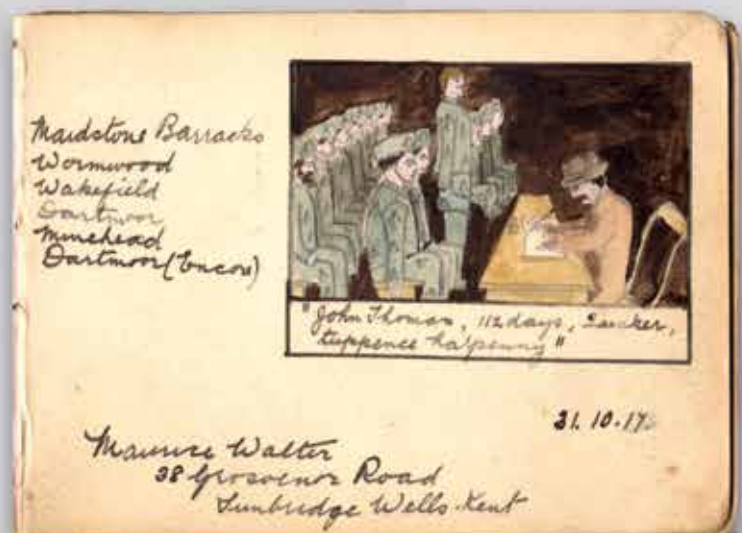 Maidstone Barracks
Wormwood
Wakefield
Dartmoor
Minehead
Dartmoor (Encore)
"John Thomas, 112 days, Quaker,
tuppence ha'penny"
31.10.17
Maurice Walter
38 Grosvenor Road
Tunbridge Wells. Kent